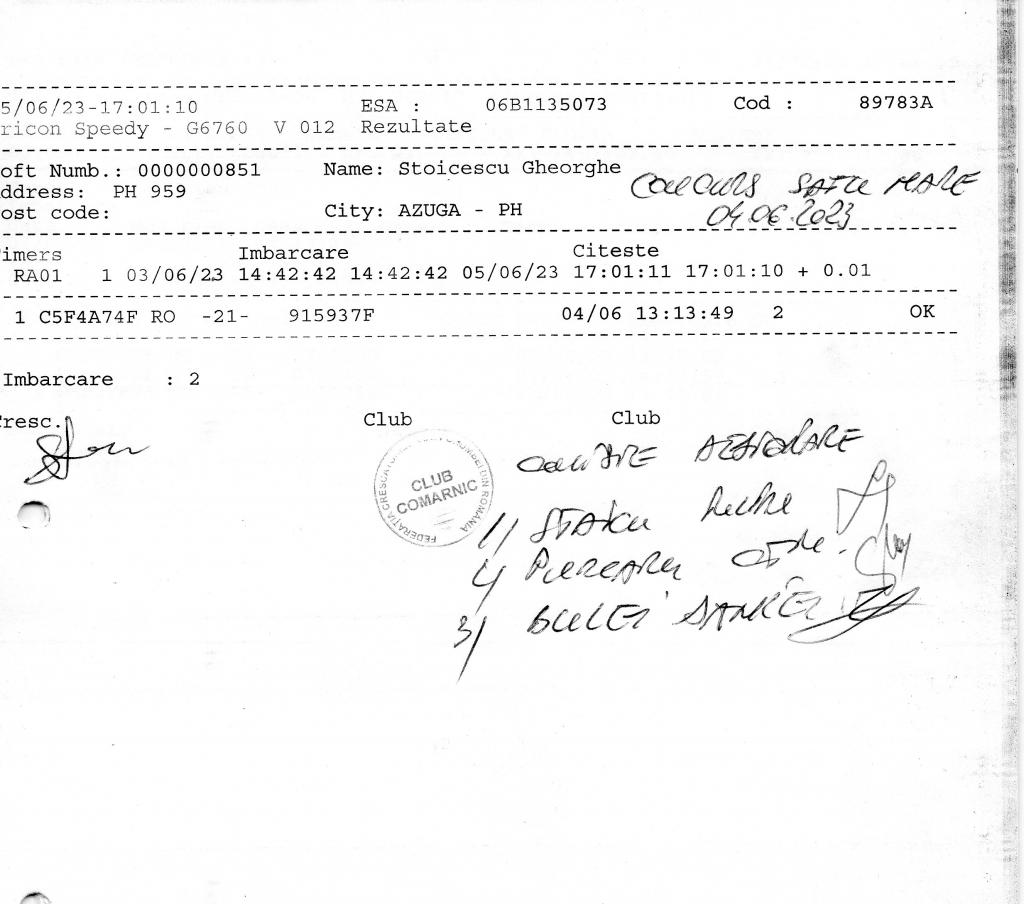 5/06/23-17:01:10 ESA : 06B1135073 Cod : 89783A
ricon Speedy - G6760 V 012 Rezultate
oft Numb.: 0000000851 Name: Stoicescu Gheorghe
ddress: PH 959
CONCURS SATU MARE
ost code: City: AZUGA - PH
04.06.2023
imers Imbarcare Citeste
RA01 1 03/06/23 14:42:42 14:42:42 05/06/23 17:01:11 17:01:10 + 0.01
1 C5F4A74F RO -21- 915937F 04/06 13:13:49 2 OK
Imbarcare : 2
resc. Club Club
CLUB
COMARNIC
DIN ROMANIA
1/
3/